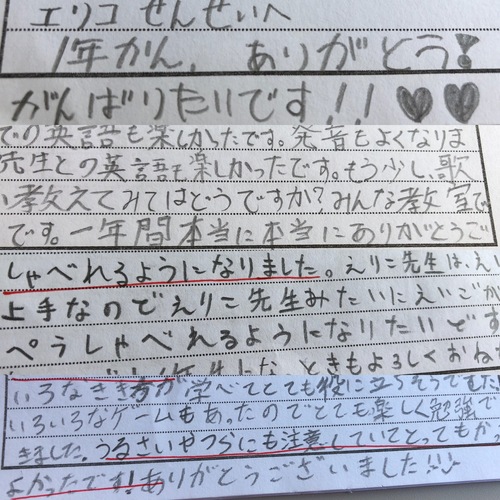 エリコ せんせいへ
1年かん、ありがとう!
がんばりたいです!! ♥♥
での英語も楽しかったです。発音もよくなりま
先生との英語も楽しかったです。もう少し、歌
い教えてみてはどうですか?みんな教室で
です。一年間本当に本当にありがとうご
しゃべれるようになりました。えりこ先生は、えい
上手なのでえりこ先生みたいにえいごが
ぺらしゃべれるようになりたいです
ときもよろしくおね
いろなきき方が学べてとても役に立ちそうでした
いろいろなゲームもあったのでとても楽しく勉強で
きました。うるさいやつらにも注意していてとってもかっ
よかったです!ありがとうございました!!!